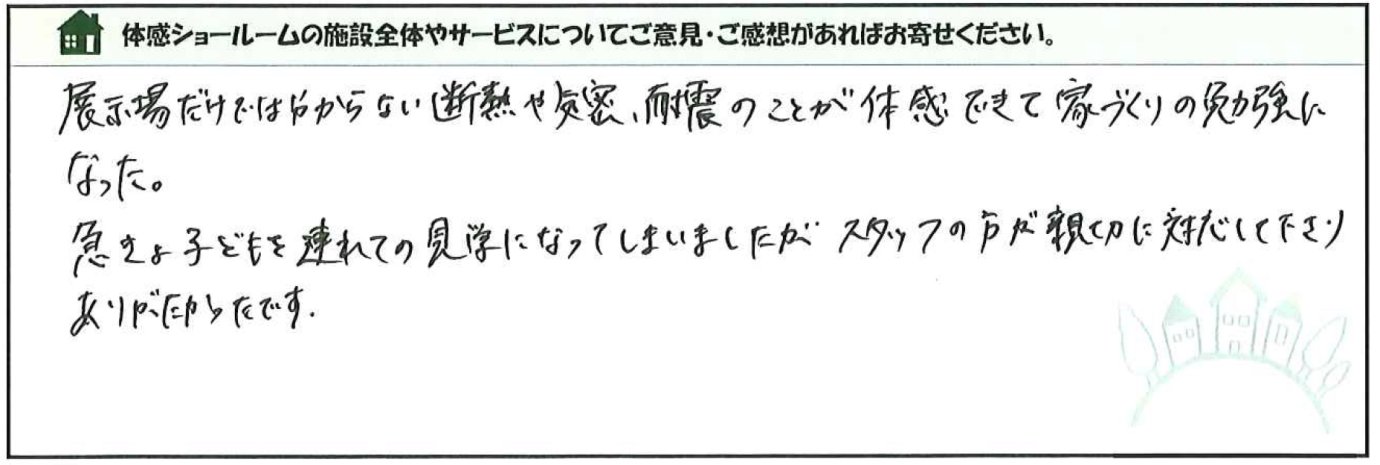 体感ショールームの施設全体やサービスについてご意見・ご感想があればお寄せください。
展示場だけでは分からない断熱や気密、耐震のことが体感できて家づくりの勉強に
なった。
急きょ子どもを連れての見学になってしまいましたが スタッフの方が親切に対応して下さり
ありがたかったです.